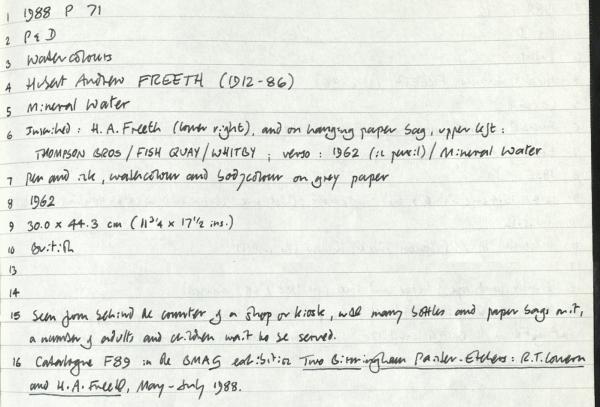 1 1988 P 71
2 P & D
3 Watercolours
4 Hubert Andrew FREETH (1912-86)
5 Mineral Water
6 Inscribed: H.A. Freeth (lower right), and on hanging paper bag, upper left:
THOMPSON BROS / FISH QUAY / WHITBY ; verso: 1962 (in pencil) / Mineral Water
7 Pen and ink, watercolour and bodycolour on grey paper
8 1962
9 30.0 x 44.3 cm (11 3/4 x 17 1/2 ins.)
10 British
13
14
15 Seen from behind the counter of a shop or kiosk, with many bottles and paper bags on it,
a number of adults and children wait to be served.
16 Catalogue F89 in the BMAG exhibition Two Birmingham Painter-Etchers: R.T. Cowern
and H.A. Freeth, May-July 1988.